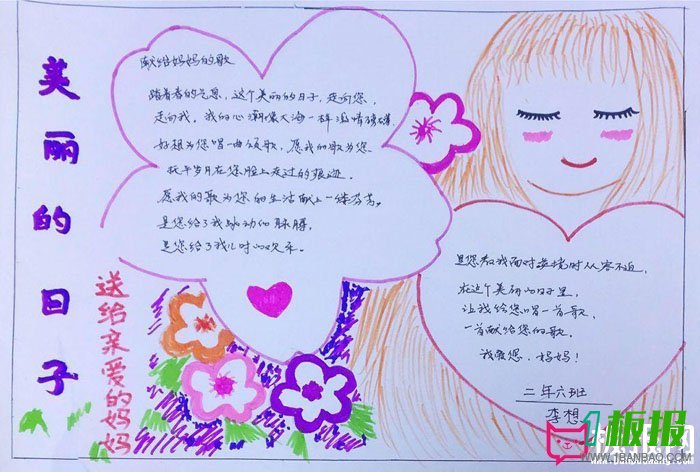 美丽的日子
送给亲爱的妈妈
献给妈妈的歌
踏着春的气息，这个美丽的日子，走向您，
走向我，我的心潮像大海一样激情磅礴
好想为您唱一曲颂歌，愿我的歌为您
抚平岁月在您脸上走过的痕迹，
愿我的歌为您的生活献上一缕芬芳。
是您给了我跳动的脉搏，
是您给了我儿时的欢乐。
是您教我面对逆境时从容不迫，
在这个美丽的日子里，
让我给您唱一首歌，
一首献给您的歌。
我爱您，妈妈！
二年六班
李想
1板报
WWW.1BANBAO.COM